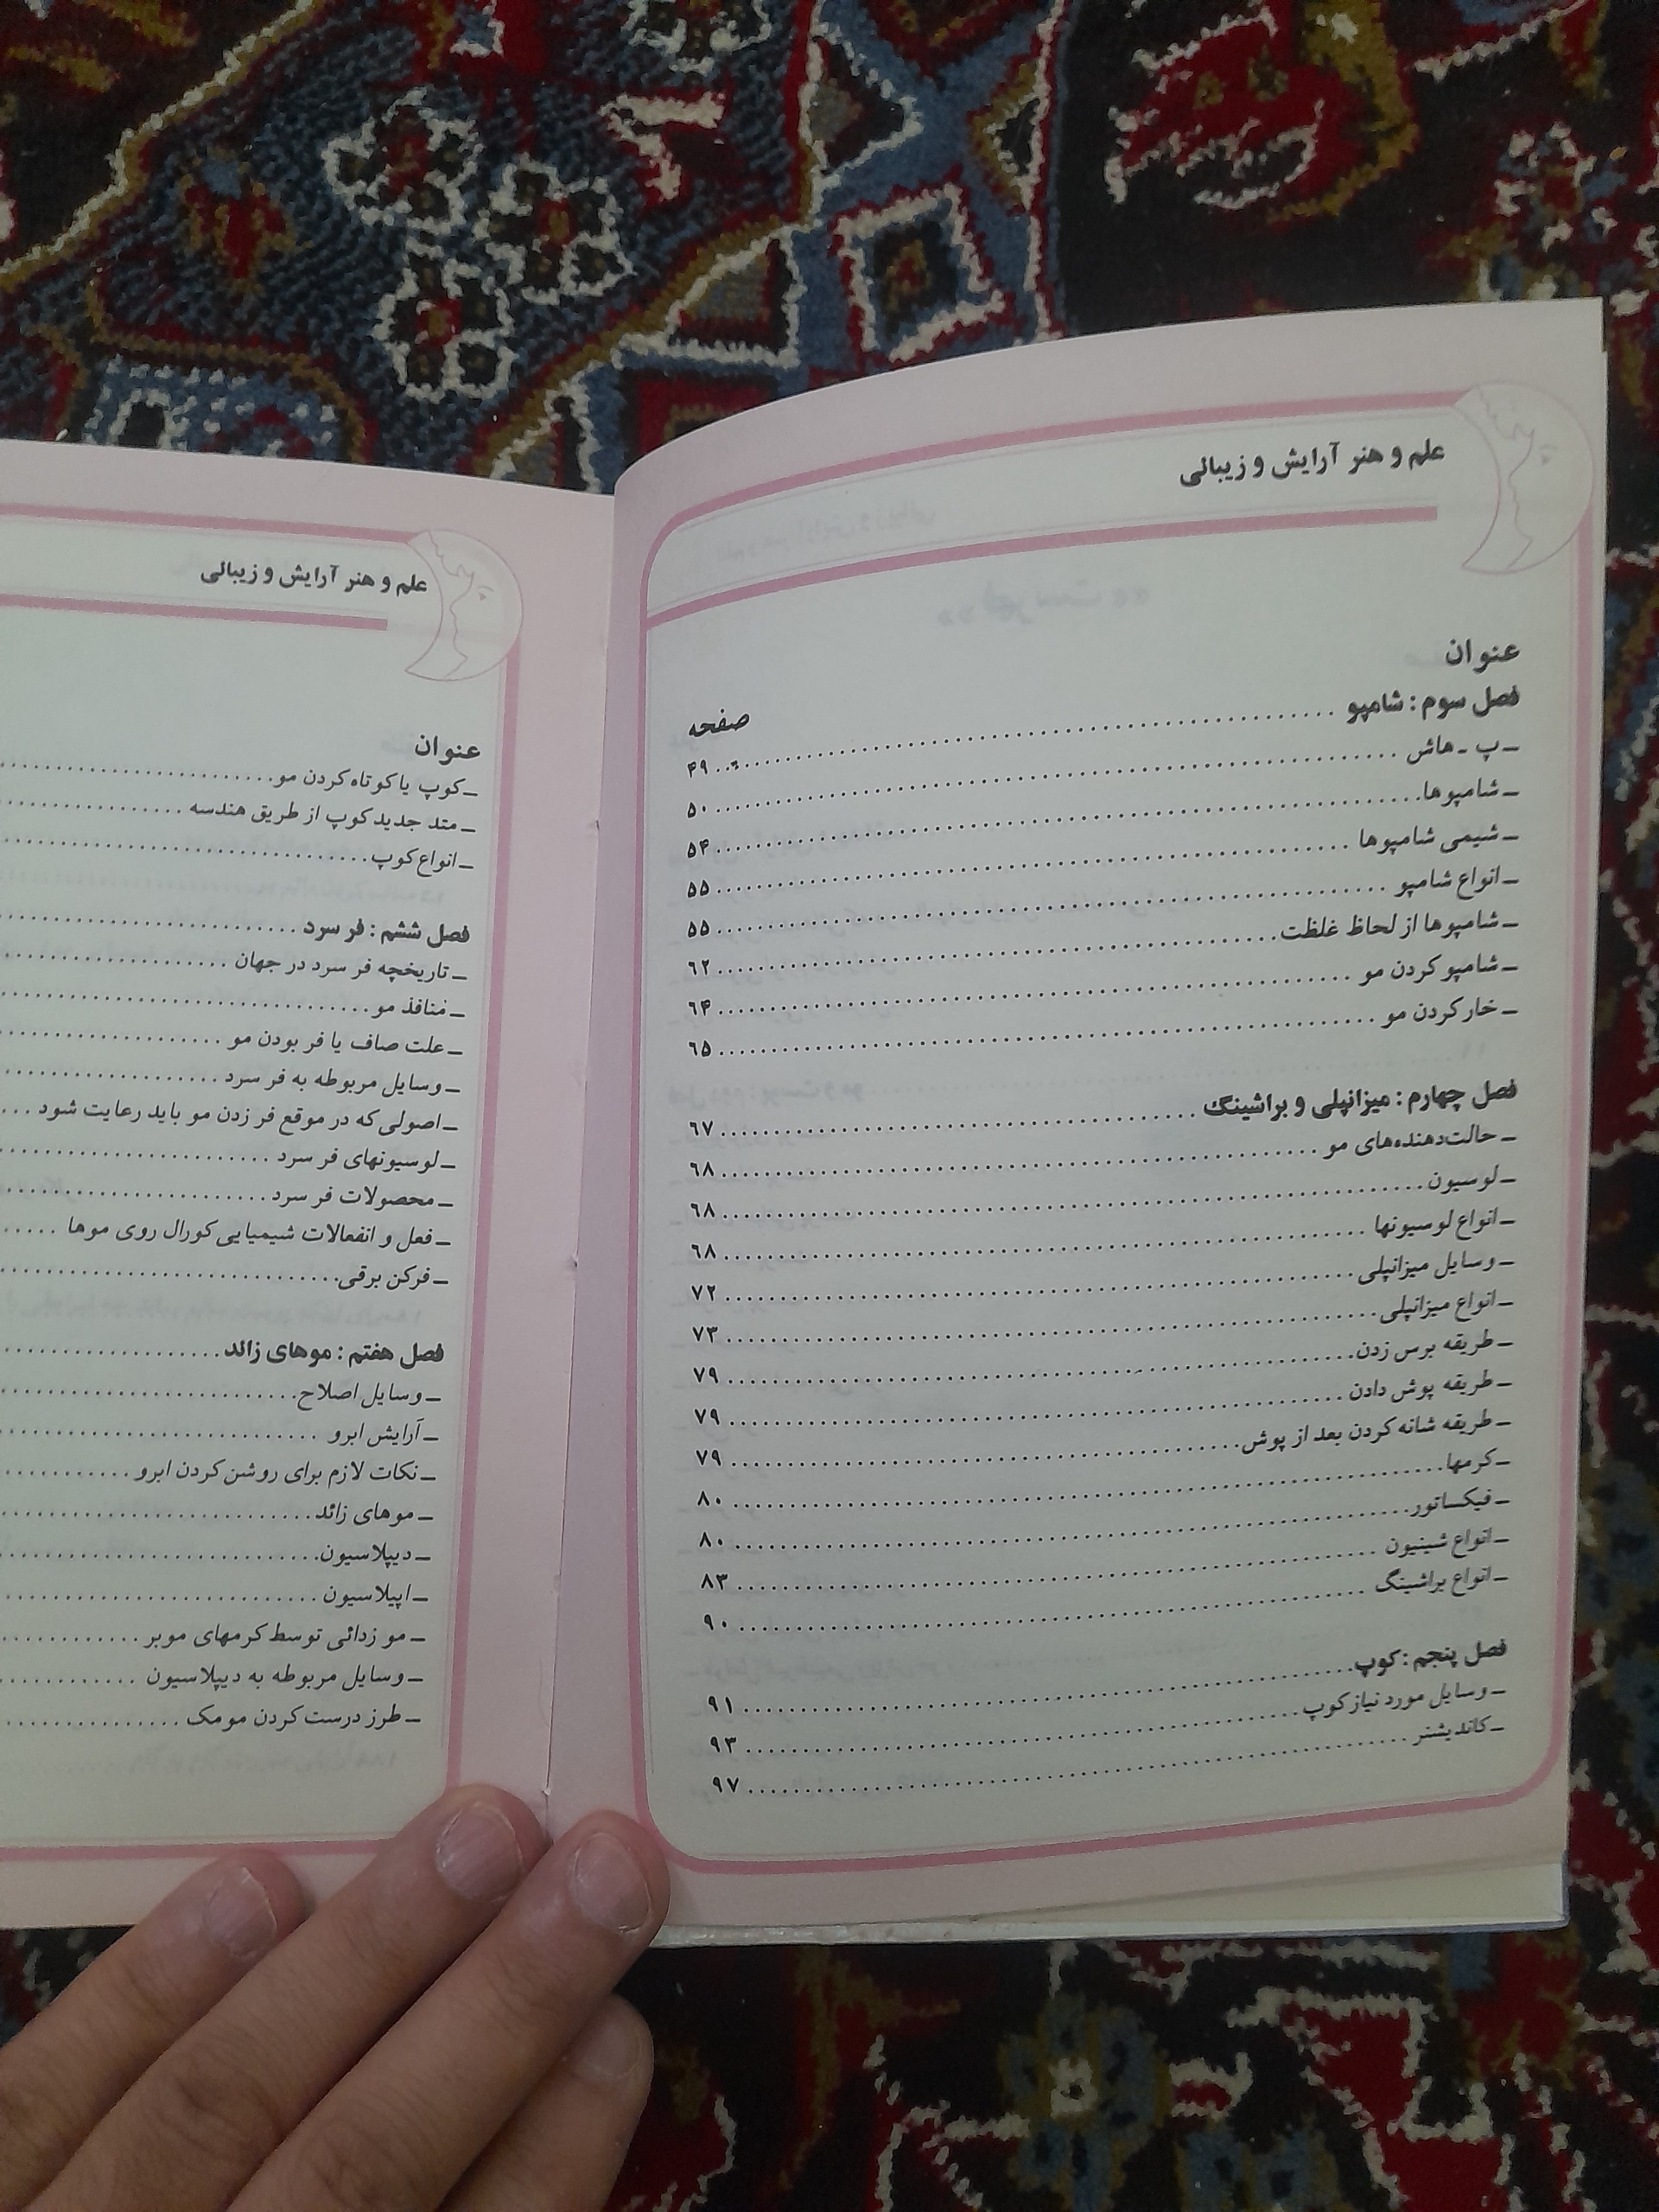 علم و هنر آرایش و زیبائی
عنوان
صفحه
فصل سوم : شامپو ........ ۴۹
ـ پ ـ هاش ........ ۵۰
ـ شامپوها ........ ۵۴
ـ شیمی شامپوها ........ ۵۵
ـ انواع شامپو ........ ۵۵
ـ شامپوها از لحاظ غلظت ........ ۶۲
ـ شامپو کردن مو ........ ۶۴
ـ خار کردن مو ........ ۶۵
فصل چهارم : میزانپلی و براشینگ ........ ۶۷
ـ حالت‌دهنده‌های مو ........ ۶۸
ـ لوسیون ........ ۶۸
ـ انواع لوسیونها ........ ۶۸
ـ وسایل میزانپلی ........ ۷۲
ـ انواع میزانپلی ........ ۷۳
ـ طریقه برس زدن ........ ۷۹
ـ طریقه پوش دادن ........ ۷۹
ـ طریقه شانه کردن بعد از پوش ........ ۷۹
ـ کرمها ........ ۸۰
ـ فیکساتور ........ ۸۰
ـ انواع شینیون ........ ۸۳
ـ انواع براشینگ ........ ۹۰
فصل پنجم : کوپ ........ ۹۱
ـ وسایل مورد نیاز کوپ ........ ۹۳
ـ کاندیشنر ........ ۹۷
علم و هنر آرایش و زیبائی
عنوان
ـ کوپ یا کوتاه کردن مو ........
ـ متد جدید کوپ از طریق هندسه ........
ـ انواع کوپ ........
فصل ششم : فر سرد ........
ـ تاریخچه فر سرد در جهان ........
ـ منافذ مو ........
ـ علت صاف یا فر بودن مو ........
ـ وسایل مربوطه به فر سرد ........
ـ اصولی که در موقع فر زدن مو باید رعایت شود ....
ـ لوسیونهای فر سرد ........
ـ محصولات فر سرد ........
ـ فعل و انفعالات شیمیایی کورال روی موها ......
ـ فرکن برقی ........
فصل هفتم : موهای زائد ........
ـ وسایل اصلاح ........
ـ آرایش ابرو ........
ـ نکات لازم برای روشن کردن ابرو ........
ـ موهای زائد ........
ـ دیپلاسیون ........
ـ اپیلاسیون ........
ـ مو زدائی توسط کرمهای موبر ........
ـ وسایل مربوطه به دیپلاسیون ........
ـ طرز درست کردن مومک ........